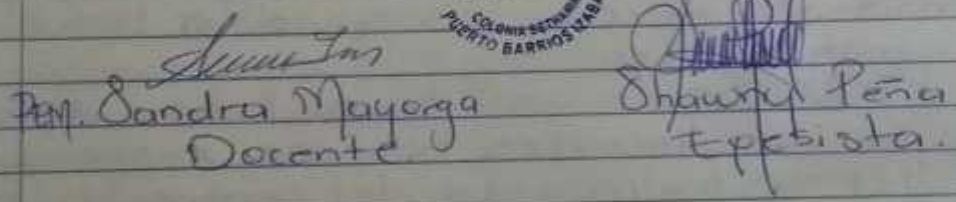 COLONIA BETHANIA
PUERTO BARRIOS IZABAL
PEM. Sandra Mayorga
Docente
Shawny Peña
Epesista.